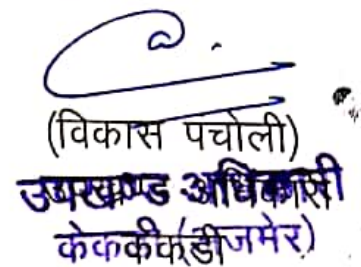 (विकास पचोली)
उपखण्ड अधिकारी
केकड़ी (अजमेर)